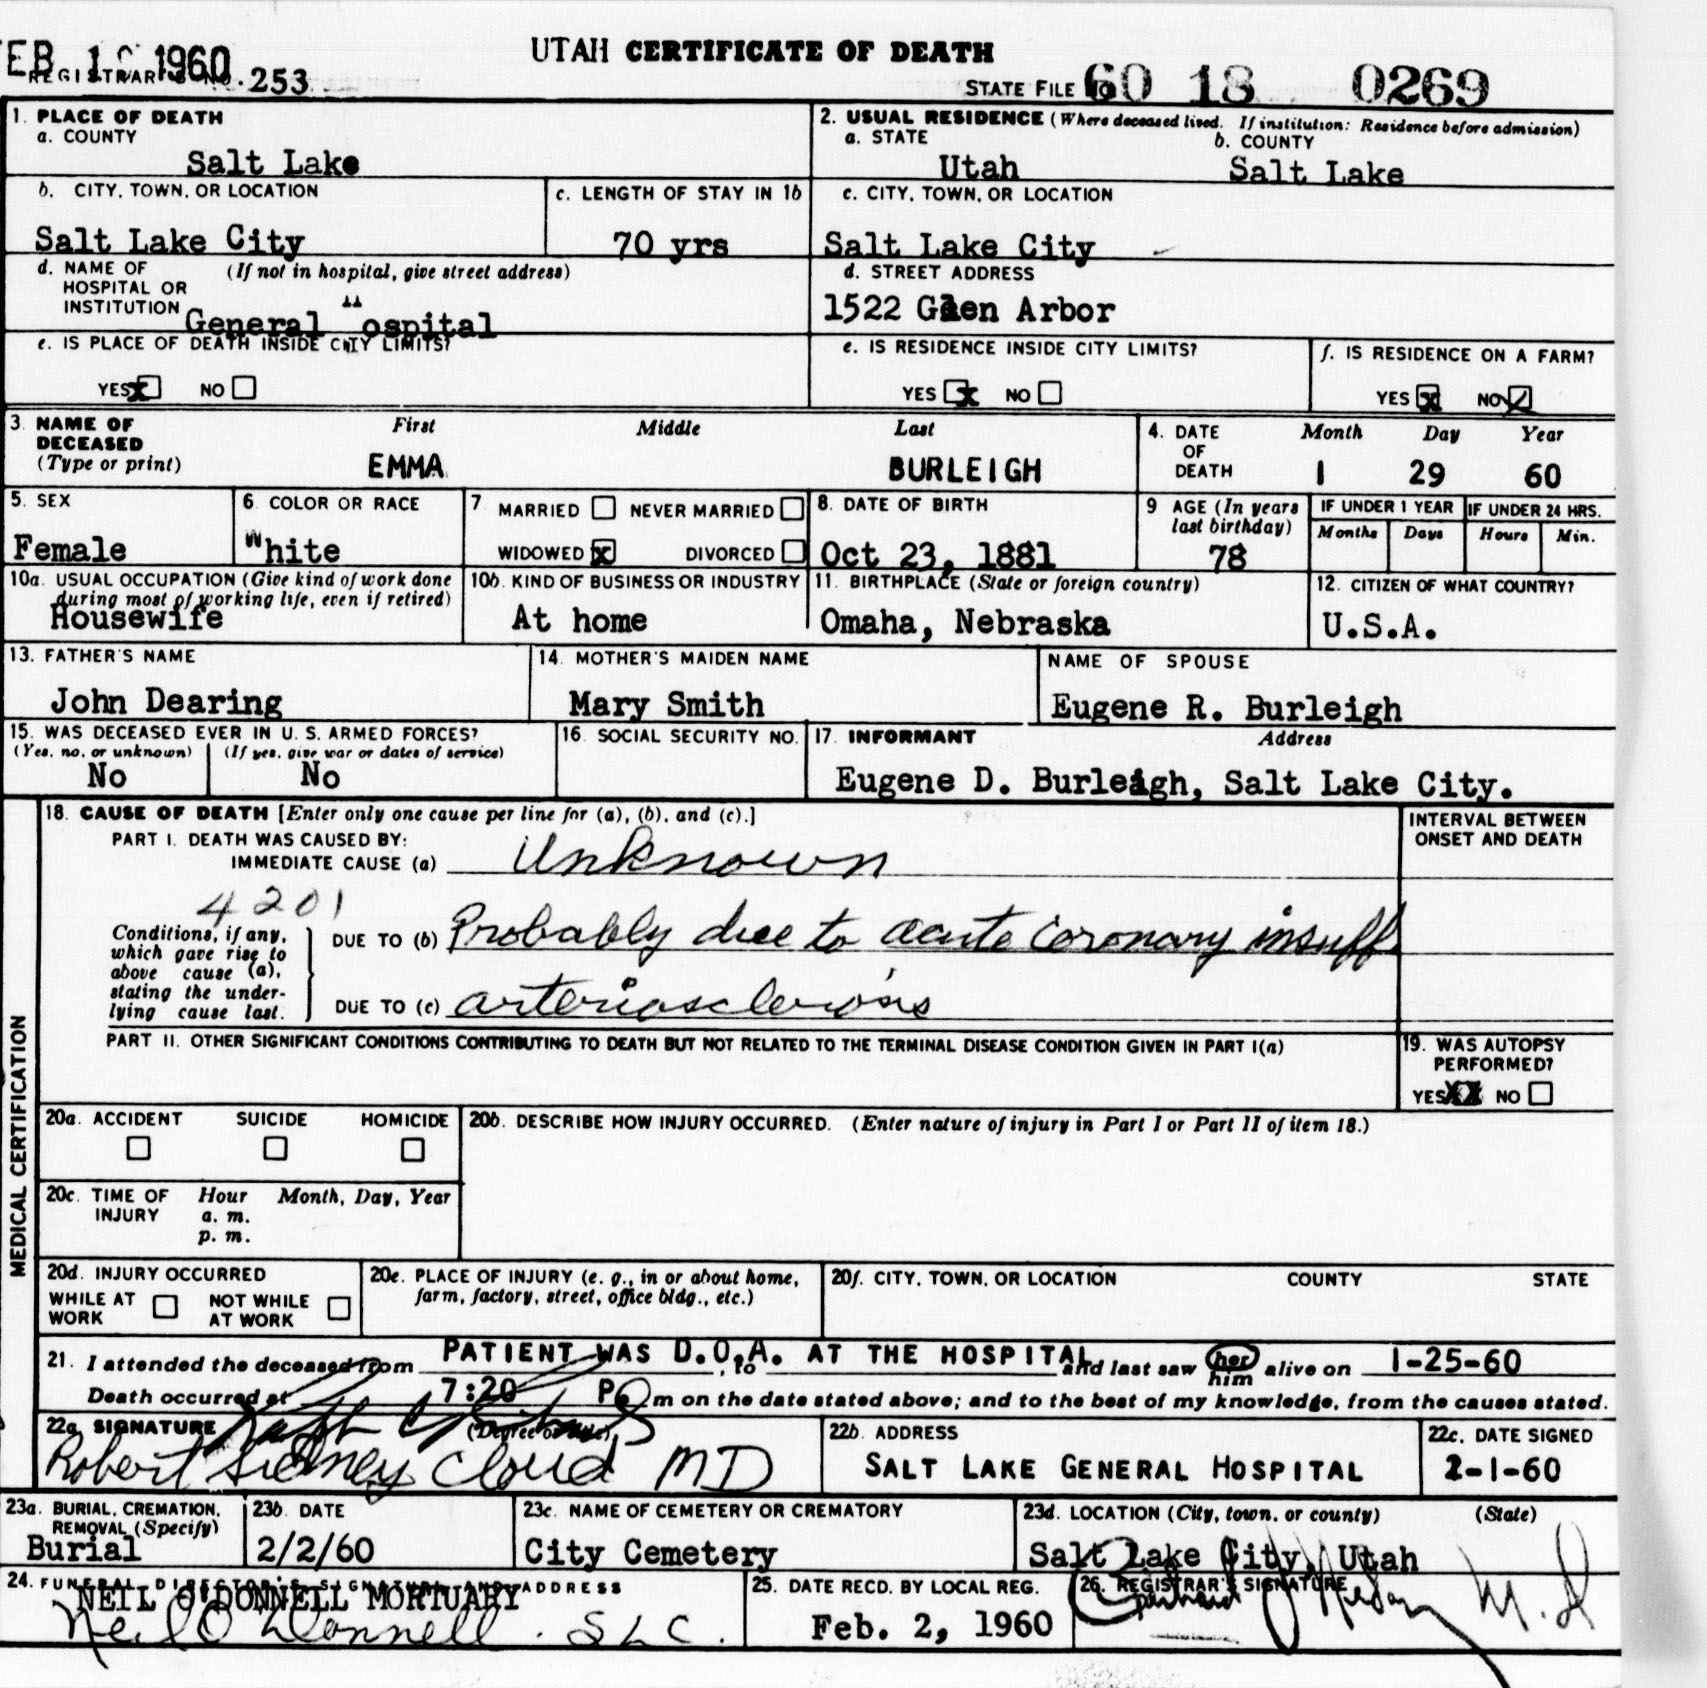 UTAH CERTIFICATE OF DEATH
EB 1 1960
REGISTRAR'S NO. 253
STATE FILE NO 60 18 0269
1. PLACE OF DEATH
a. COUNTY
Salt Lake
2. USUAL RESIDENCE (Where deceased lived. If institution: Residence before admission)
a. STATE b. COUNTY
Utah Salt Lake
b. CITY, TOWN, OR LOCATION c. LENGTH OF STAY IN 1b
Salt Lake City 70 yrs
c. CITY, TOWN, OR LOCATION
Salt Lake City
d. NAME OF (If not in hospital, give street address)
HOSPITAL OR
INSTITUTION General Hospital
d. STREET ADDRESS
1522 Glen Arbor
e. IS PLACE OF DEATH INSIDE CITY LIMITS?
YES x NO
e. IS RESIDENCE INSIDE CITY LIMITS?
YES x NO
f. IS RESIDENCE ON A FARM?
YES x NO ✓
3. NAME OF First Middle Last
DECEASED
(Type or print) EMMA BURLEIGH
4. DATE Month Day Year
OF
DEATH 1 29 60
5. SEX
Female
6. COLOR OR RACE
White
7 MARRIED NEVER MARRIED
WIDOWED x DIVORCED
8. DATE OF BIRTH
Oct 23, 1881
9 AGE (In years
last birthday)
78
IF UNDER 1 YEAR IF UNDER 24 HRS.
Months Days Hours Min.
10a. USUAL OCCUPATION (Give kind of work done
during most of working life, even if retired)
Housewife
10b. KIND OF BUSINESS OR INDUSTRY
At home
11. BIRTHPLACE (State or foreign country)
Omaha, Nebraska
12. CITIZEN OF WHAT COUNTRY?
U.S.A.
13. FATHER'S NAME
John Dearing
14. MOTHER'S MAIDEN NAME
Mary Smith
NAME OF SPOUSE
Eugene R. Burleigh
15. WAS DECEASED EVER IN U. S. ARMED FORCES?
(Yes, no, or unknown) (If yes, give war or dates of service)
No No
16. SOCIAL SECURITY NO.
17. INFORMANT Address
Eugene D. Burleigh, Salt Lake City.
MEDICAL CERTIFICATION
18. CAUSE OF DEATH [Enter only one cause per line for (a), (b), and (c).]
INTERVAL BETWEEN
ONSET AND DEATH
PART I. DEATH WAS CAUSED BY:
IMMEDIATE CAUSE (a) Unknown
4201
Conditions, if any,
which gave rise to
above cause (a),
stating the under-
lying cause last.
DUE TO (b) Probably due to acute coronary insuff
DUE TO (c) arteriosclerosis
PART II. OTHER SIGNIFICANT CONDITIONS CONTRIBUTING TO DEATH BUT NOT RELATED TO THE TERMINAL DISEASE CONDITION GIVEN IN PART I(a)
19. WAS AUTOPSY
PERFORMED?
YES XX NO
20a. ACCIDENT SUICIDE HOMICIDE
20b. DESCRIBE HOW INJURY OCCURRED. (Enter nature of injury in Part I or Part II of item 18.)
20c. TIME OF Hour Month, Day, Year
INJURY a. m.
p. m.
20d. INJURY OCCURRED
WHILE AT NOT WHILE
WORK AT WORK
20e. PLACE OF INJURY (e. g., in or about home,
farm, factory, street, office bldg., etc.)
20f. CITY, TOWN, OR LOCATION COUNTY STATE
21. I attended the deceased from PATIENT WAS D.O.A. AT THE HOSPITAL, to and last saw her him alive on 1-25-60
Death occurred at 7:20 P m on the date stated above; and to the best of my knowledge, from the causes stated.
22a. SIGNATURE (Degree or title)
Robert Sidney Cloud MD
22b. ADDRESS
SALT LAKE GENERAL HOSPITAL
22c. DATE SIGNED
2-1-60
23a. BURIAL, CREMATION,
REMOVAL (Specify)
Burial
23b. DATE
2/2/60
23c. NAME OF CEMETERY OR CREMATORY
City Cemetery
23d. LOCATION (City, town, or county) (State)
Salt Lake City, Utah
24. FUNERAL DIRECTOR'S SIGNATURE AND ADDRESS
NEIL O'DONNELL MORTUARY
Neil O'Donnell. SLC.
25. DATE RECD. BY LOCAL REG.
Feb. 2, 1960
26. REGISTRAR'S SIGNATURE
M.D